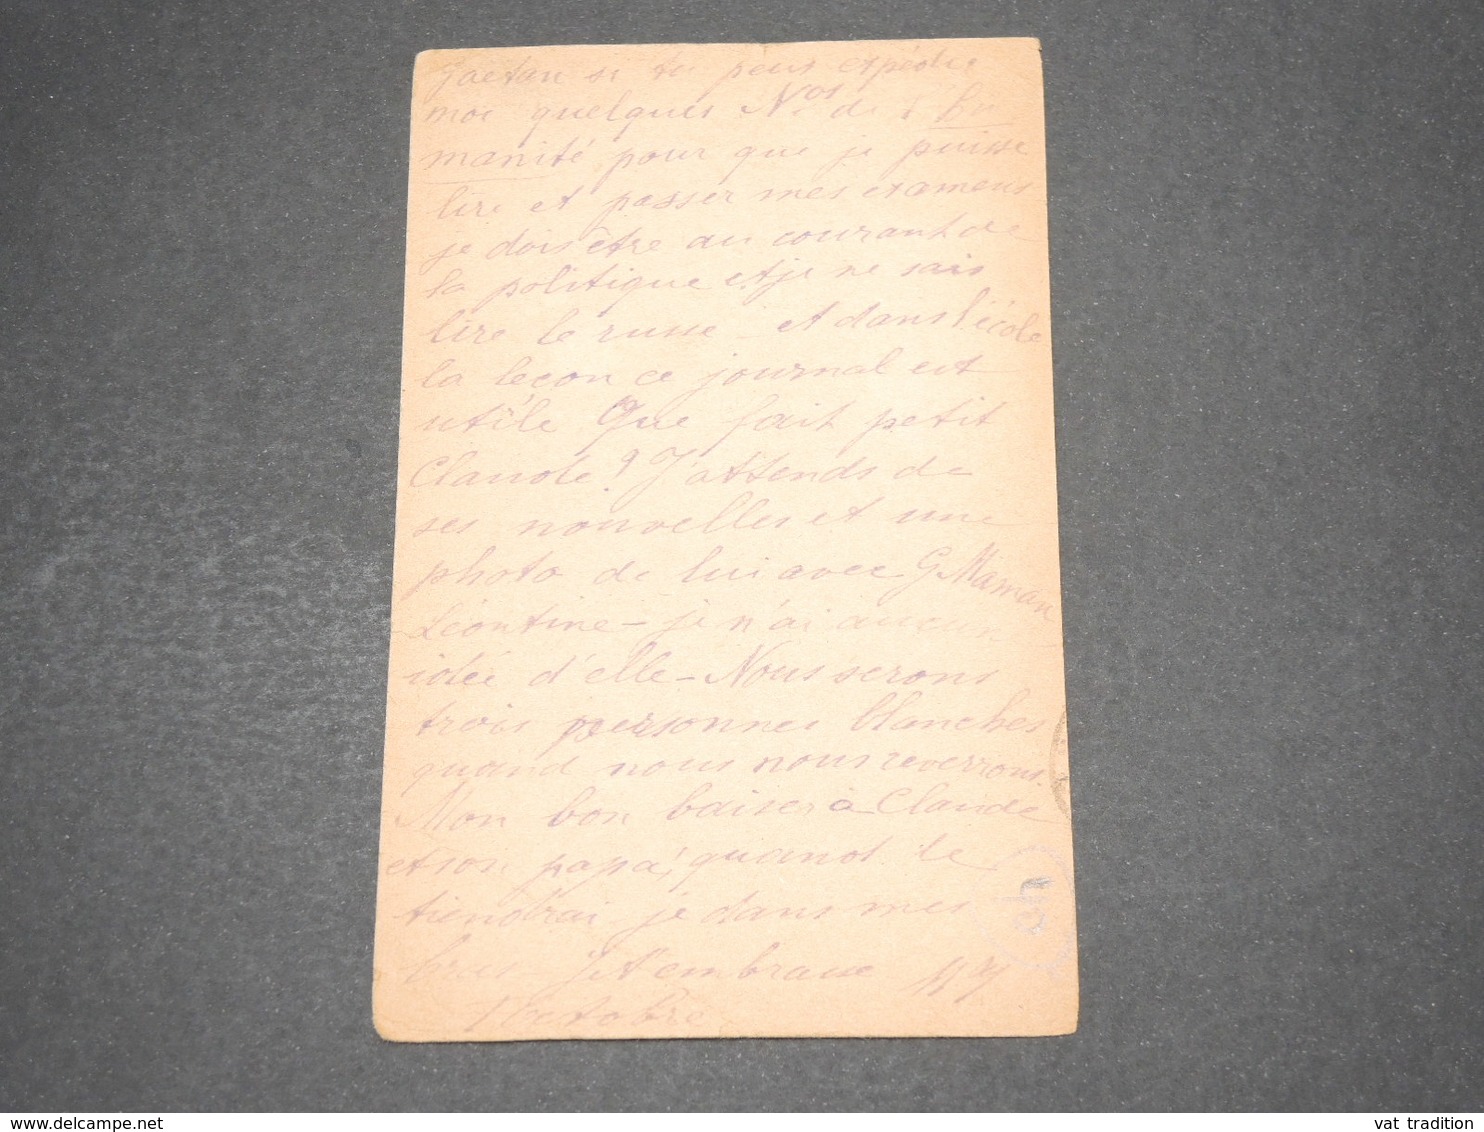 Gaetan si tu peux expédie
moi quelques Nos de l'Hu
manité pour que je puisse
lire et passer mes examens
je dois être au courant de
la politique et je ne sais
lire le russe et dans l'école
la leçon ce journal est
utile Que fait petit
Claude? J'attends de
ses nouvelles et une
photo de lui avec G Maman
Léontine - je n'ai aucun
idée d'elle - Nous serons
trois personnes blanches
quand nous nous reverrons.
Mon bon baiser à Claude
et son papa, quand le
tiendrai je dans mes
bras - Je t'embrasse
1 Octobre
vat tradition